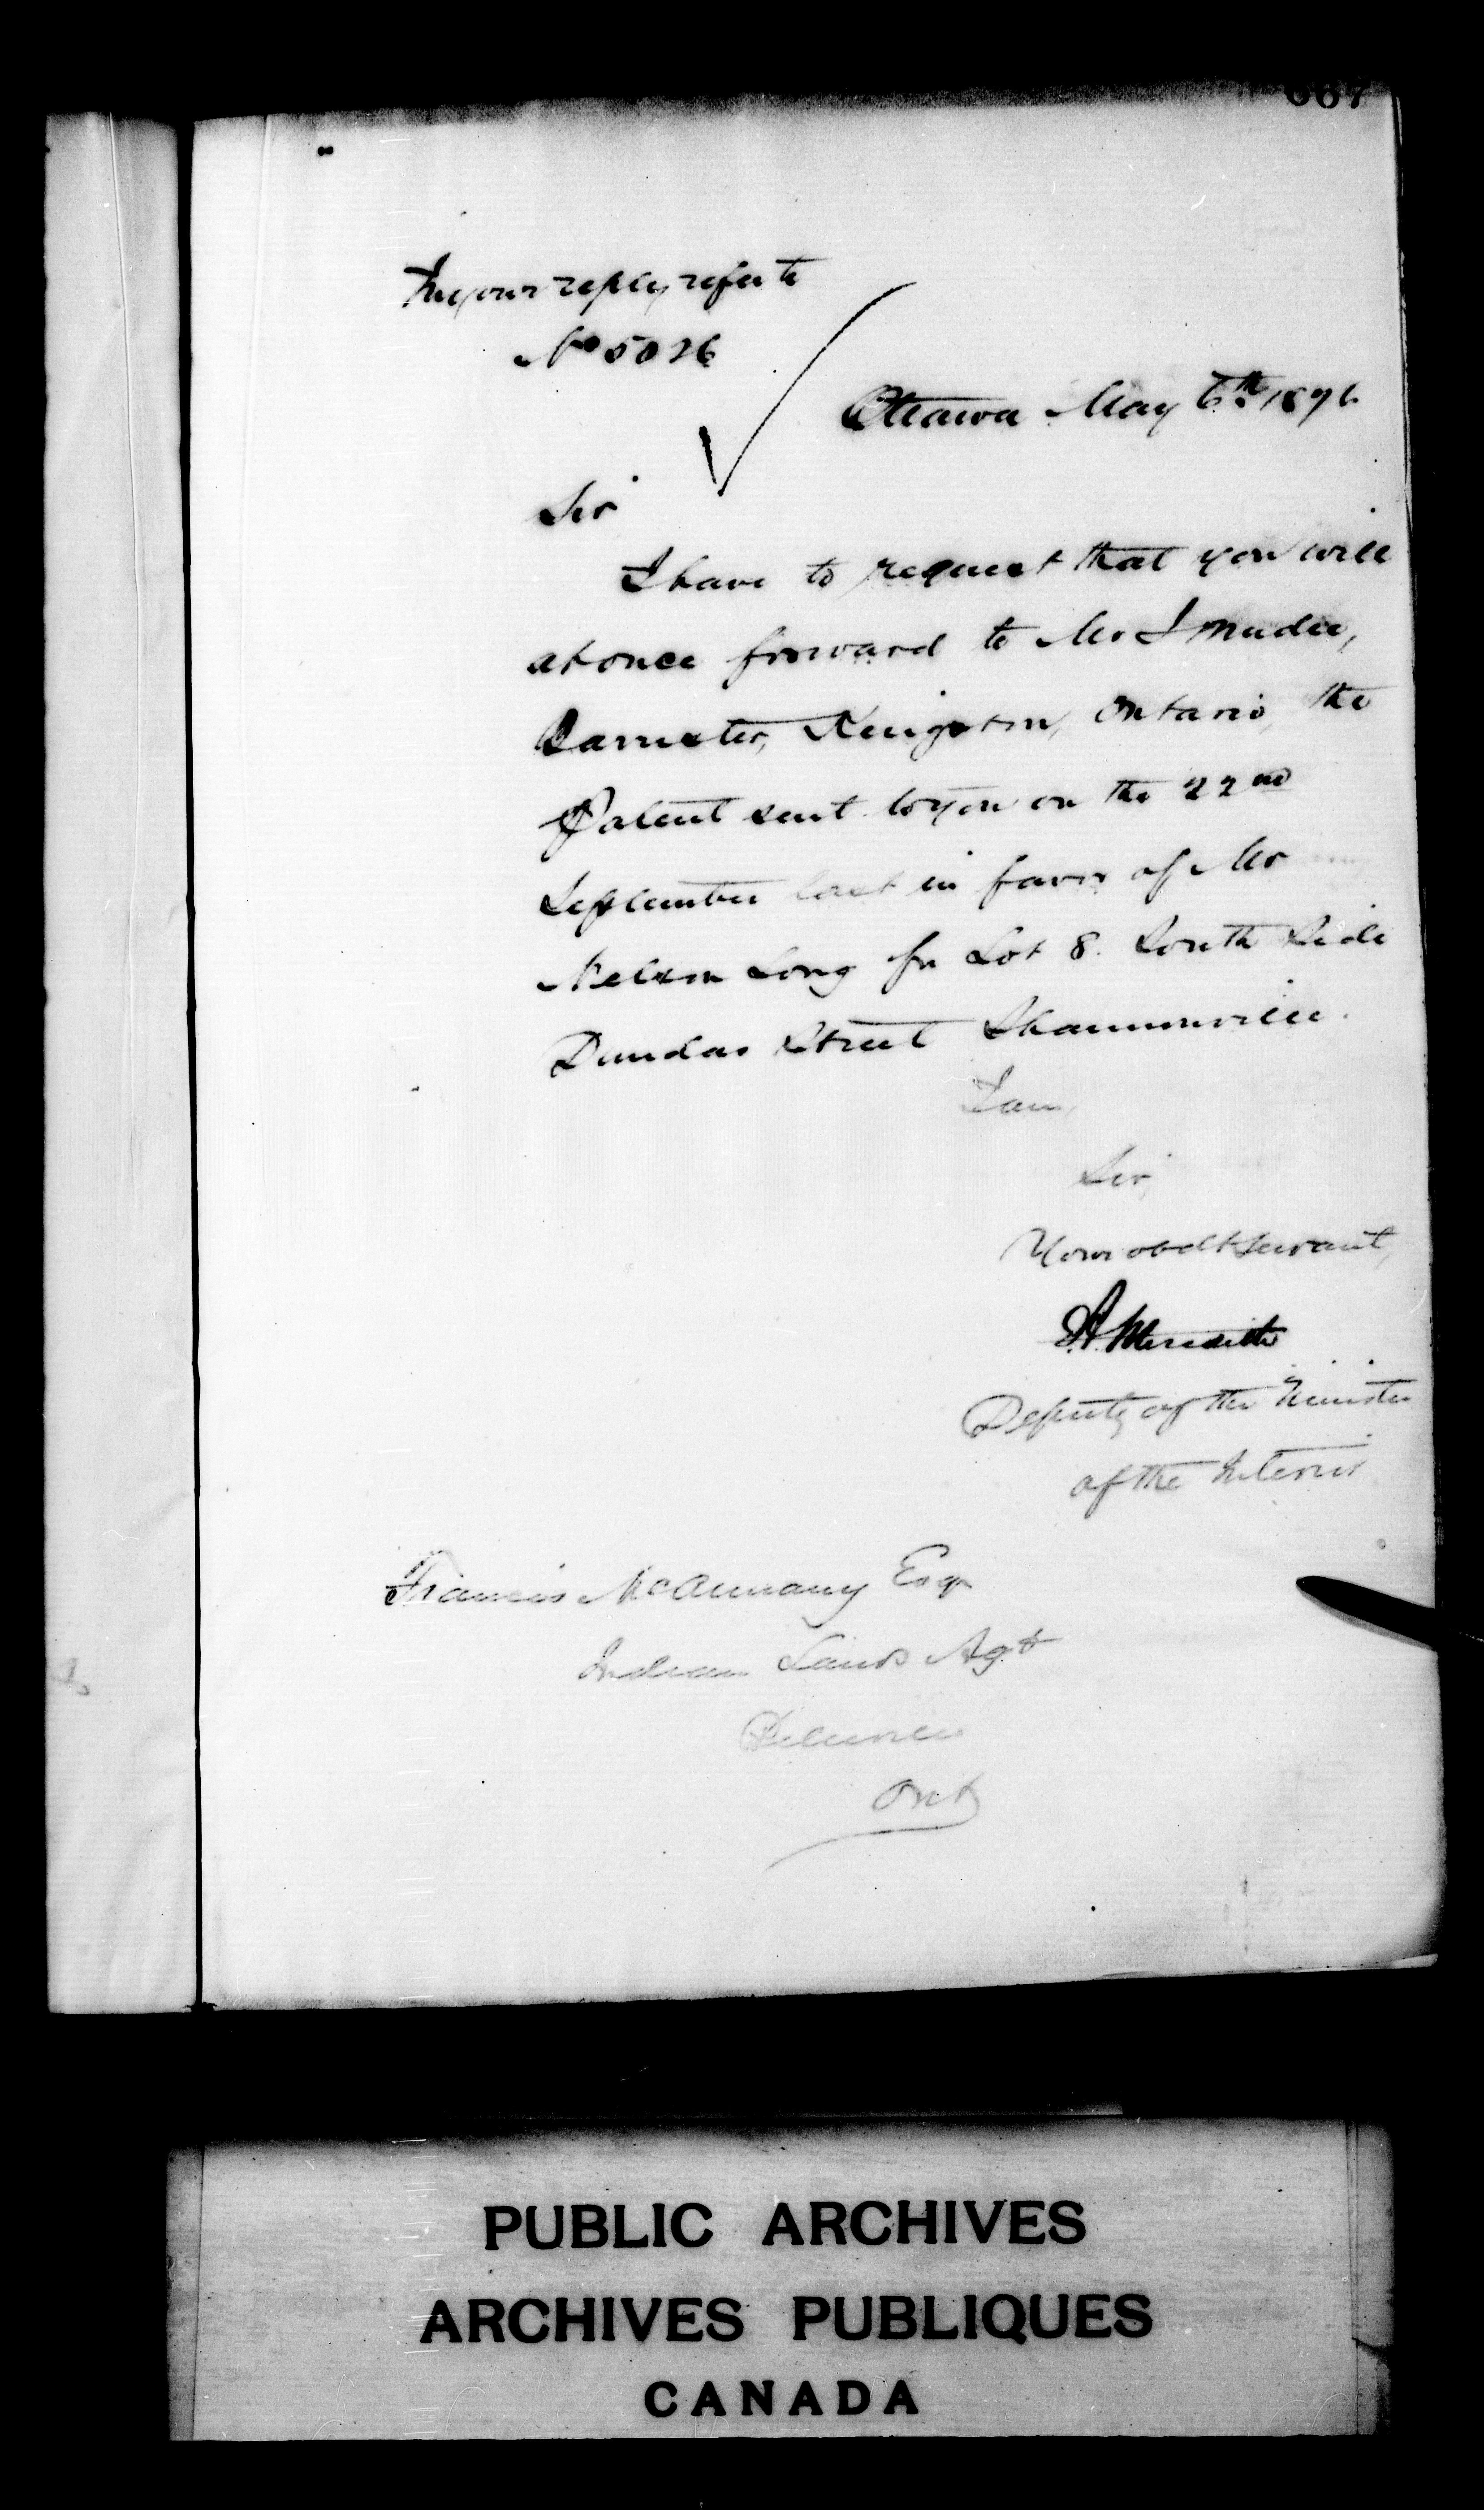 667
In your reply refer to
No 5026
Ottawa May 6th 1876
Sir
I have to request that you will
at once forward to Mr J Mudie,
Barrister, Kingston, Ontario, the
Patent sent to you on the 22nd
September last in favor of Mr
Nelson Long for Lot 8. South Side
Dundas Street Shannonville.
I am,
Sir,
Your obedt servant,
A Meredith
Deputy of the Minister
of the Interior
Francis McAnnany Esqr
Indian Lands Agt
Belleville
Ont
PUBLIC ARCHIVES
ARCHIVES PUBLIQUES
CANADA